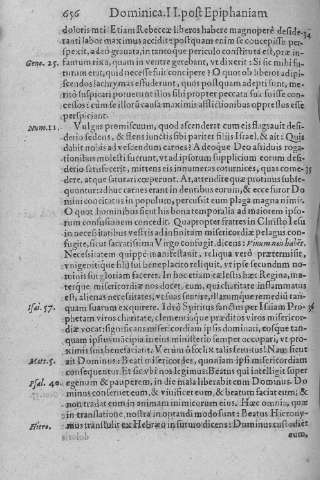 656 Dominica.II.post Epiphaniam
doloris mei? Etiam Rebecca liberos habere magnopere deside- 34
tanti labor maximus accidit: postquam enim se concepisse per-
spexit, adeo grauata, in tantoque periculo constituta est, præ in-
Gene. 25. fantum rixa, quam in ventre gerebant, vt dixerit: Si sic mihi fu-
turum erat, quid necesse fuit concipere? O quot ob liberos adipi-
scendos lacrymas effuderunt, quos postquam adepti sunt, me-
rito suspicari potuerunt illos sibi propter peccata sua fuisse con-
cessos: cum se illorū causa maximis afflictionibus oppressos esse
perspiciant.
Num. 11. Vulgus promiscuum, quod ascenderat cum eis flagrauit desi-
derio, sedens, & flens iunctis sibi pariter filijs Israel, & ait: Quis
dabit nobis ad vescendum carnes? Adeoque Deo assiduis roga-
tionibus molesti fuerunt, vt ad ipsorum supplicium eorum desi-
derio satisfecerit, mittens eis innumeras coturnices, quas come- 35
derent, atque saturi comperent. At, attendite quæ protinus subse-
quuntur: adhuc carnes erant in dentibus eorum, & ecce furor Do
mini concitatus in populum, percussit eum plaga magna nimis.
O quot hominibus sicut his bona temporalia ad maiorem ipso-
rum confusionem concedit. Quapropter fratres in Christo Iesu
in necessitatibus vestris ad infinitam misericordiæ pelagus con-
fugite, sicut sacratissima Virgo confugit, dicens: Vinum non habēt.
Necessitatem quippe manifestauit, reliqua vero prætermisit,
vt vnigenitus filij sui beneplacito reliquit, vt ipse secundum no-
minis sui gloriam faceret. In hoc etiam cælestis hæc Regina, ma-
terque misericordiæ nos docet, eum, qui charitate inflammatus
est, alienas necessitates, vt suas sentire, illarumque remedia tan-
Isai. 57. quam suarum exquirere. Ideo Spiritus sanctus per Isaiam Pro- 36
phetam viros charitate, clementiaque præditos viros misericor-
diæ vocat: significans misericordiam ipsis dominari, eosque tan-
quam ipsius mancipia in eius ministerio semper occupari, vt pro
ximis suis beneficiant. Verum o fœlix talis seruitus! Nam sicut
Mat. 5. ait Dominus: Beati misericordes, quoniam ipsi misericordiam
consequentur. Et sic vbi nos legimus: Beatus qui intelligit super
Psal. 40. egenum & pauperem, in die mala liberabit eum Dominus. Do
minus conseruet eum, & viuificet eum, & beatum faciat eum; &
non tradat eum in animam inimicorum eius. Hæc omnia, quæ
in translatione, nostra in optandi modo sunt: Beatus Hierony-
Hiero. mus transtulit ex Hebræo in futuro dicens: Dominus custodiet
eum,